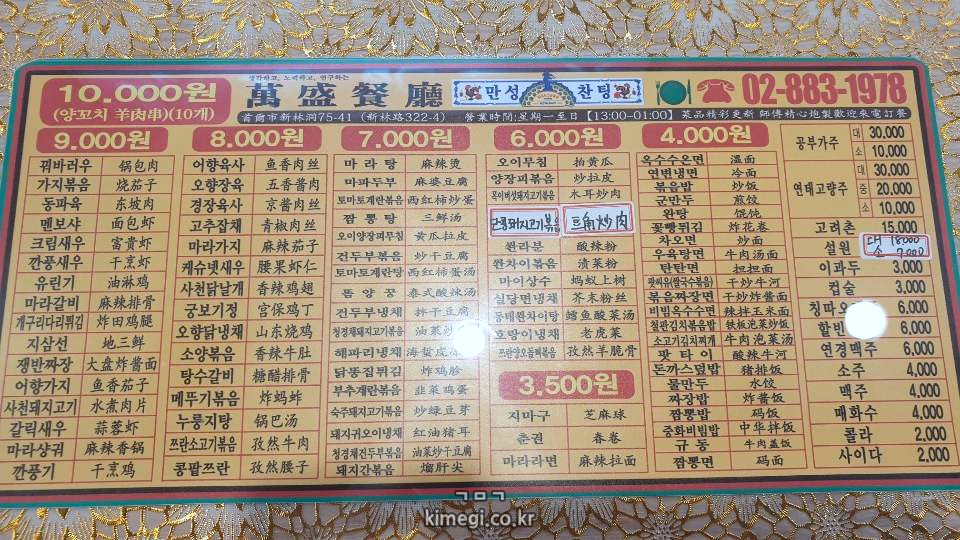 생각하고, 노력하고, 연구하는
10.000원
(양꼬치 羊肉串)(10개)
萬盛餐廳
만성 찬팅
02-883-1978
首爾市新林洞75-41 (新林路322-4)
營業時間:星期一至日【13:00~01:00】菜品精彩更新 師傅精心炮製歡迎來電訂餐
9.000원
꿔바러우 锅包肉
가지볶음 烧茄子
동파육 东坡肉
멘보샤 面包虾
크림새우 富贵虾
깐풍새우 干烹虾
유린기 油淋鸡
마라갈비 麻辣排骨
개구리다리튀김 炸田鸡腿
지삼선 地三鲜
쟁반짜장 大盘炸酱面
어향가지 鱼香茄子
사천돼지고기 水煮肉片
갈릭새우 蒜蓉虾
마라샹궈 麻辣香锅
깐풍기 干烹鸡
8.000원
어향육사 鱼香肉丝
오향장육 五香酱肉
경장육사 京酱肉丝
고추잡채 青椒肉丝
마라가지 麻辣茄子
케슈넷새우 腰果虾仁
사천닭날개 香辣鸡翅
궁보기정 宫保鸡丁
오향닭냉채 山东烧鸡
소양볶음 香辣牛肚
탕수갈비 糖醋排骨
메뚜기볶음 炸蚂蚱
누룽지탕 锅巴汤
쯔란소고기볶음 孜然牛肉
콩팥쯔란 孜然腰子
7.000원
마라탕 麻辣烫
마파두부 麻婆豆腐
토마토계란볶음 西红柿炒蛋
짬뽕탕 三鲜汤
오이양장피무침 黄瓜拉皮
건두부볶음 炒干豆腐
토마토계란탕 西红柿蛋汤
똠양꿍 泰式酸辣汤
건두부냉채 拌干豆腐
청경채돼지고기볶음 油菜炒
해파리냉채 海蜇皮
닭똥집튀김 炸鸡胗
부추계란볶음 韭菜鸡蛋
숙주돼지고기볶음 炒绿豆芽
돼지귀오이냉채 红油猪耳
청경채건두부볶음 油菜炒干豆腐
돼지간볶음 熘肝尖
6.000원
오이무침 拍黄瓜
양장피볶음 炒拉皮
목이버섯돼지고기볶음 木耳炒肉
三角炒肉
쏸라분 酸辣粉
완차이볶음 渍菜粉
마이상수 蚂蚁上树
실당면냉채 芥末粉丝
동태완차이탕 鳕鱼酸菜汤
호랑이냉채 老虎菜
쯔란양오돌뼈볶음 孜然羊脆骨
3.500원
지마구 芝麻球
춘권 春卷
마라라면 麻辣拉面
4.000원
옥수수온면 温面
연변냉면 冷面
볶음밥 炒饭
군만두 煎饺
완탕 馄饨
꽃빵튀김 炸花卷
차오면 炒面
우육탕면 牛肉汤面
탄탄면 担担面
팟씨유(쌀국수볶음) 干炒牛河
볶음짜장면 干炒炸酱面
비빔옥수수면 辣拌玉米面
철판김치볶음밥 铁板泡菜炒饭
소고기김치찌개 牛肉泡菜汤
팟타이 酸辣牛河
돈까스덮밥 猪排饭
물만두 水饺
짜장밥 炸酱饭
짬뽕밥 码饭
중화비빔밥 中华拌饭
규동 牛肉盖饭
짬뽕면 码面
공부가주 대 30,000
소 10,000
연태고량주 대 30,000
중 20,000
소 10,000
고려촌 15,000
설원 대 18000
소 7000
이과두 3,000
컵술 3,000
칭따오 6,000
할빈 6,000
연경맥주 6,000
소주 4,000
맥주 4,000
매화수 4,000
콜라 2,000
사이다 2,000
ㄱㅁㄱ
kimegi.co.kr